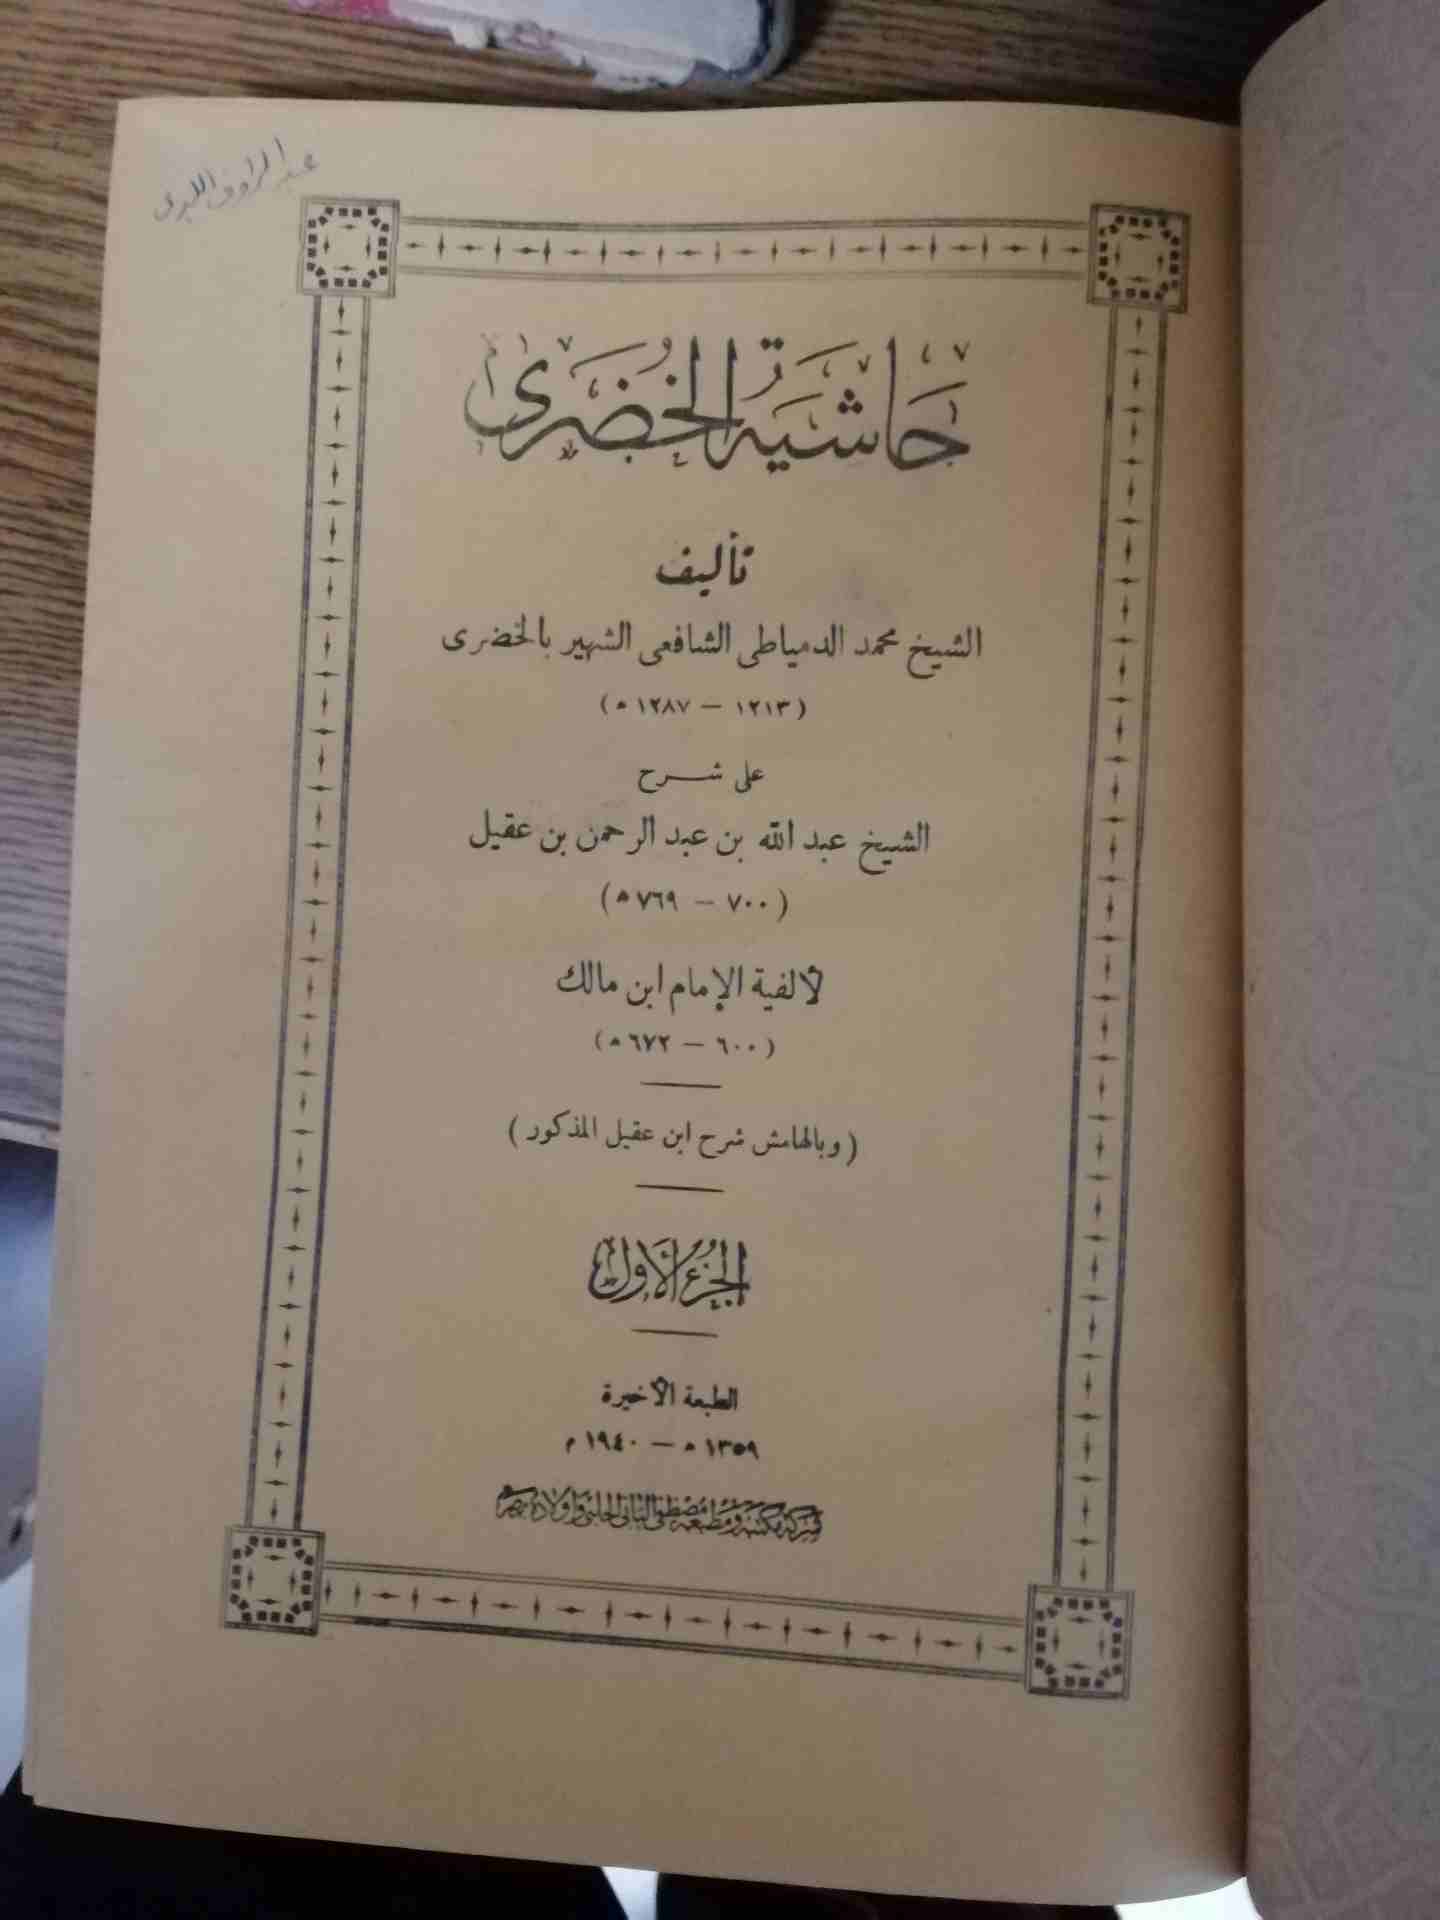 عبد الرؤوف اللبدي
حاشية الخُضَرى
تأليف
الشيخ محمد الدمياطى الشافعى الشهير بالخضرى
(١٢١٣ – ١٢٨٧ ه)
على شرح
الشيخ عبد الله بن عبد الرحمن بن عقيل
(٧٠٠ – ٧٦٩ ه)
لألفية الإمام ابن مالك
(٦٠٠ – ٦٧٢ ه)
(وبالهامش شرح ابن عقيل المذكور)
الجزء الأول
الطبعة الأخيرة
١٣٥٩ ه – ١٩٤٠ م
شركة مكتبة ومطبعة مصطفى البابى الحلبى وأولاده بمصر